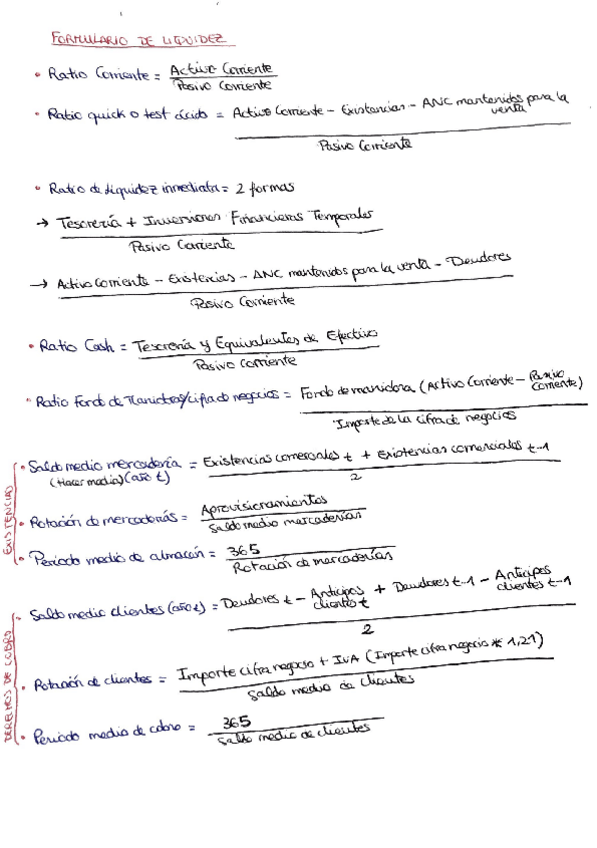 FORMULARIO DE LIQUIDEZ
• Ratio Corriente = Activo Corriente
Pasivo Corriente
• Ratio quick o test ácido = Activo Corriente - Existencias - ANC mantenidos para la
venta
Pasivo Corriente
• Ratio de Liquidez inmediata = 2 formas
→ Tesorería + Inversiones Financieras Temporales
Pasivo Corriente
→ Activo corriente - Existencias - ANC mantenidos para la venta - Deudores
Pasivo Corriente
• Ratio Cash = Tesorería y Equivalentes de Efectivo
Pasivo corriente
• Ratio Fondo de Maniobra/cifra de negocios = Fondo de maniobra (Activo Corriente - Pasivo
corriente)
Importe de la cifra de negocios
EXISTENCIAS
• Saldo medio mercadería = Existencias comerciales t + Existencias comerciales t-1
(Hacer media) (año t)
2
• Rotación de mercaderías = Aprovisionamientos
Saldo medio mercaderías
• Periodo medio de almacén = 365
Rotación de mercaderías
DERECHOS DE COBRO
• Saldo medio clientes (año t) = Deudores t - Anticipos clientes t + Deudores t-1 - Anticipos clientes t-1
2
• Rotación de clientes = Importe cifra negocio + IVA (Importe cifra negocio * 1,21)
Saldo medio de clientes
• Periodo medio de cobro = 365
Saldo medio de clientes